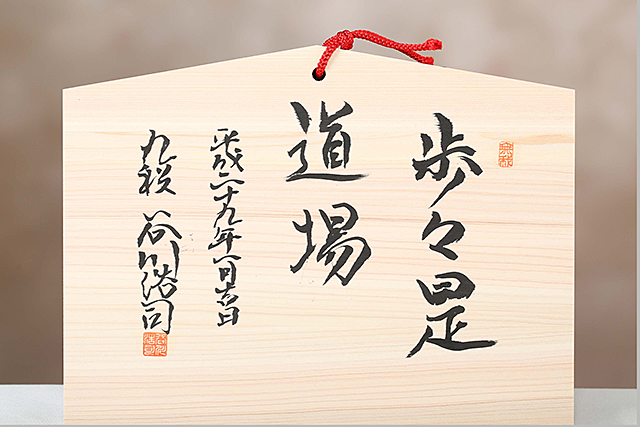 歩々是
道場
平成二十九年一月吉日
九段 谷川浩司